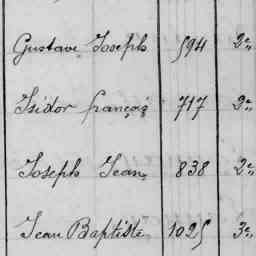 Gustave Joseph 594 2e
Isidor françois 717 2e
Joseph Jean 838 2e
Jean Baptiste 1025 3e